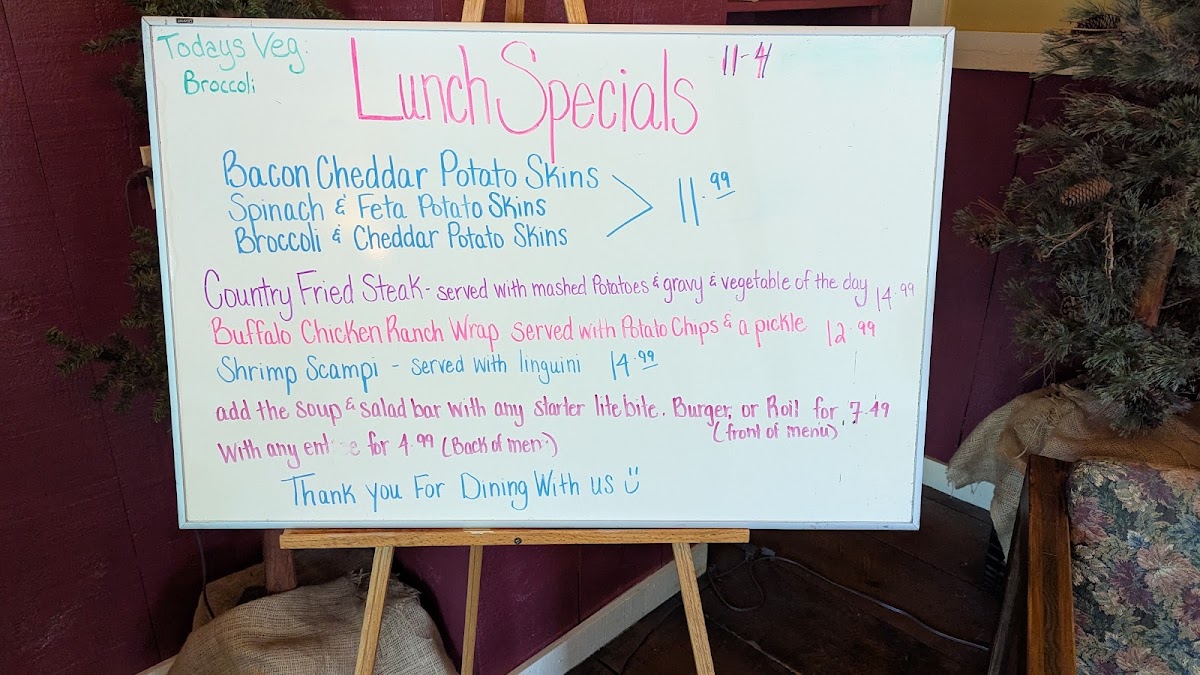 Todays Veg:
Broccoli
Lunch Specials 11-4
Bacon Cheddar Potato Skins
Spinach & Feta Potato Skins
Broccoli & Cheddar Potato Skins
11.99
Country Fried Steak - served with mashed Potatoes & gravy & vegetable of the day 14.99
Buffalo Chicken Ranch Wrap served with Potato Chips & a pickle 12.99
Shrimp Scampi - served with linguini 14.99
add the soup & salad bar with any starter lite bite. Burger, or Roll for 7.49
(front of menu)
With any for 4.99 (Back of menu)
Thank you For Dining With us